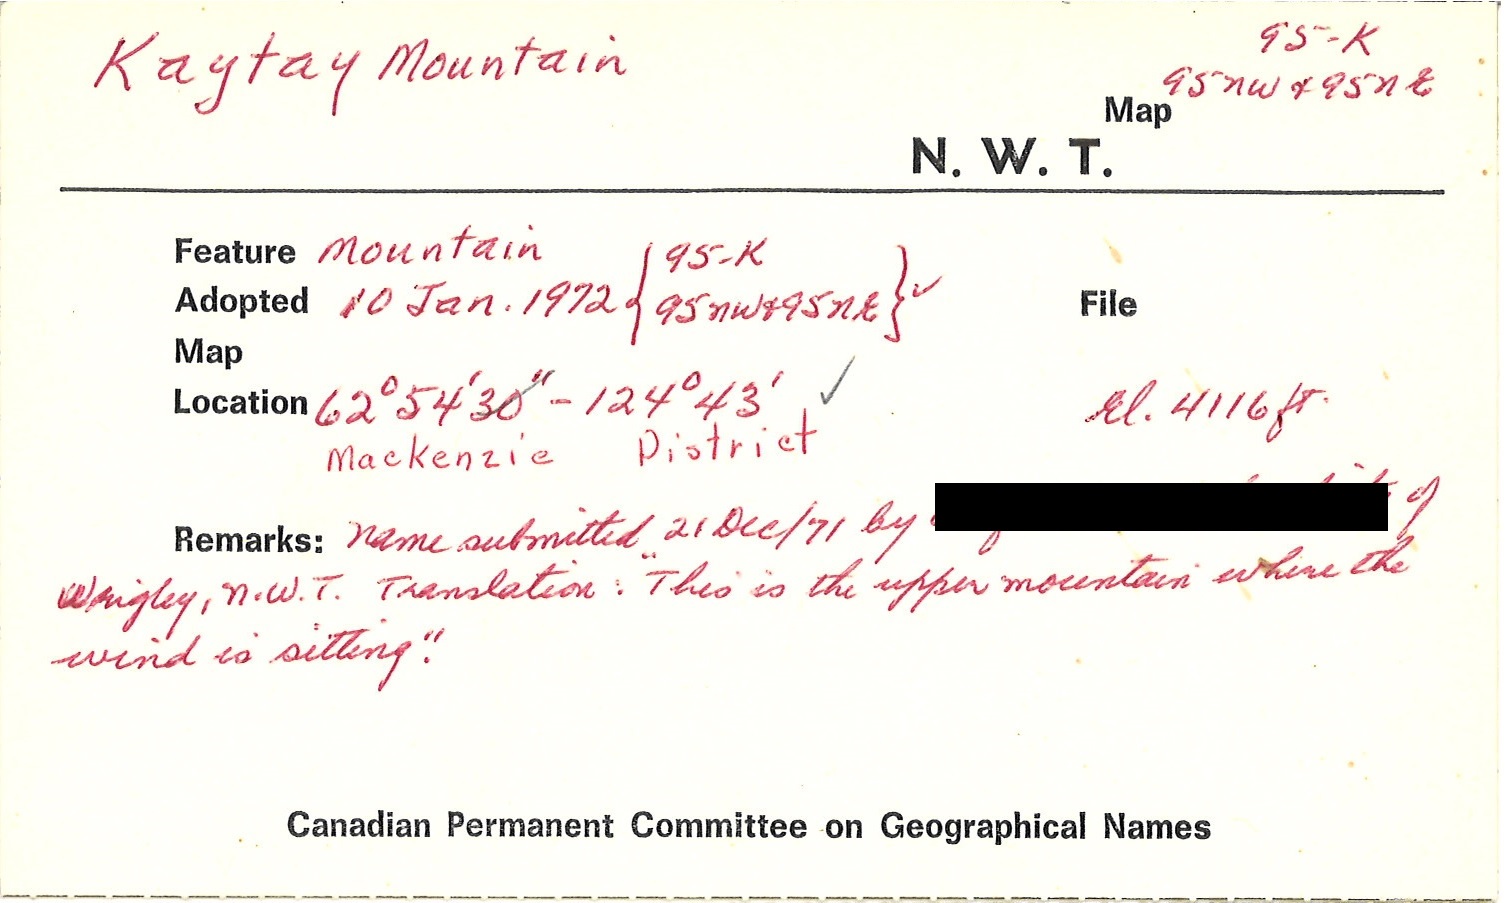 Kaytay Mountain
95-K
95NW & 95NE
Map
N. W. T.
Feature Mountain
Adopted 10 Jan. 1972 { 95-K
95NW & 95NE } ✓
File
Map
Location 62°54'30" - 124°43' ✓
El. 4116 ft.
Mackenzie District
Remarks: Name submitted 21 Dec/71 by of
Wrigley, N.W.T. Translation: "This is the upper mountain where the
wind is sitting".
Canadian Permanent Committee on Geographical Names